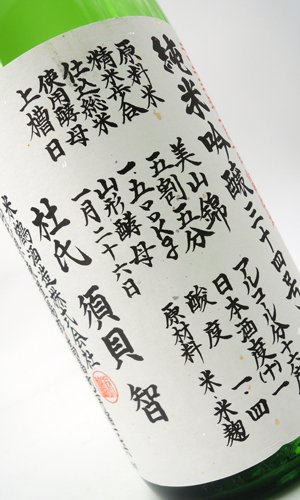 純米吟醸三十四号
原料米 美山錦
精米歩合 五割五分
仕込総米 一、五〇〇kg
使用酵母 山形酵母
上槽日 一月二十六日
アルコール分十六度
日本酒度(+)一
酸度 一.四
原材料 米 米麹
杜氏 須貝 智
米鶴酒造株式会社